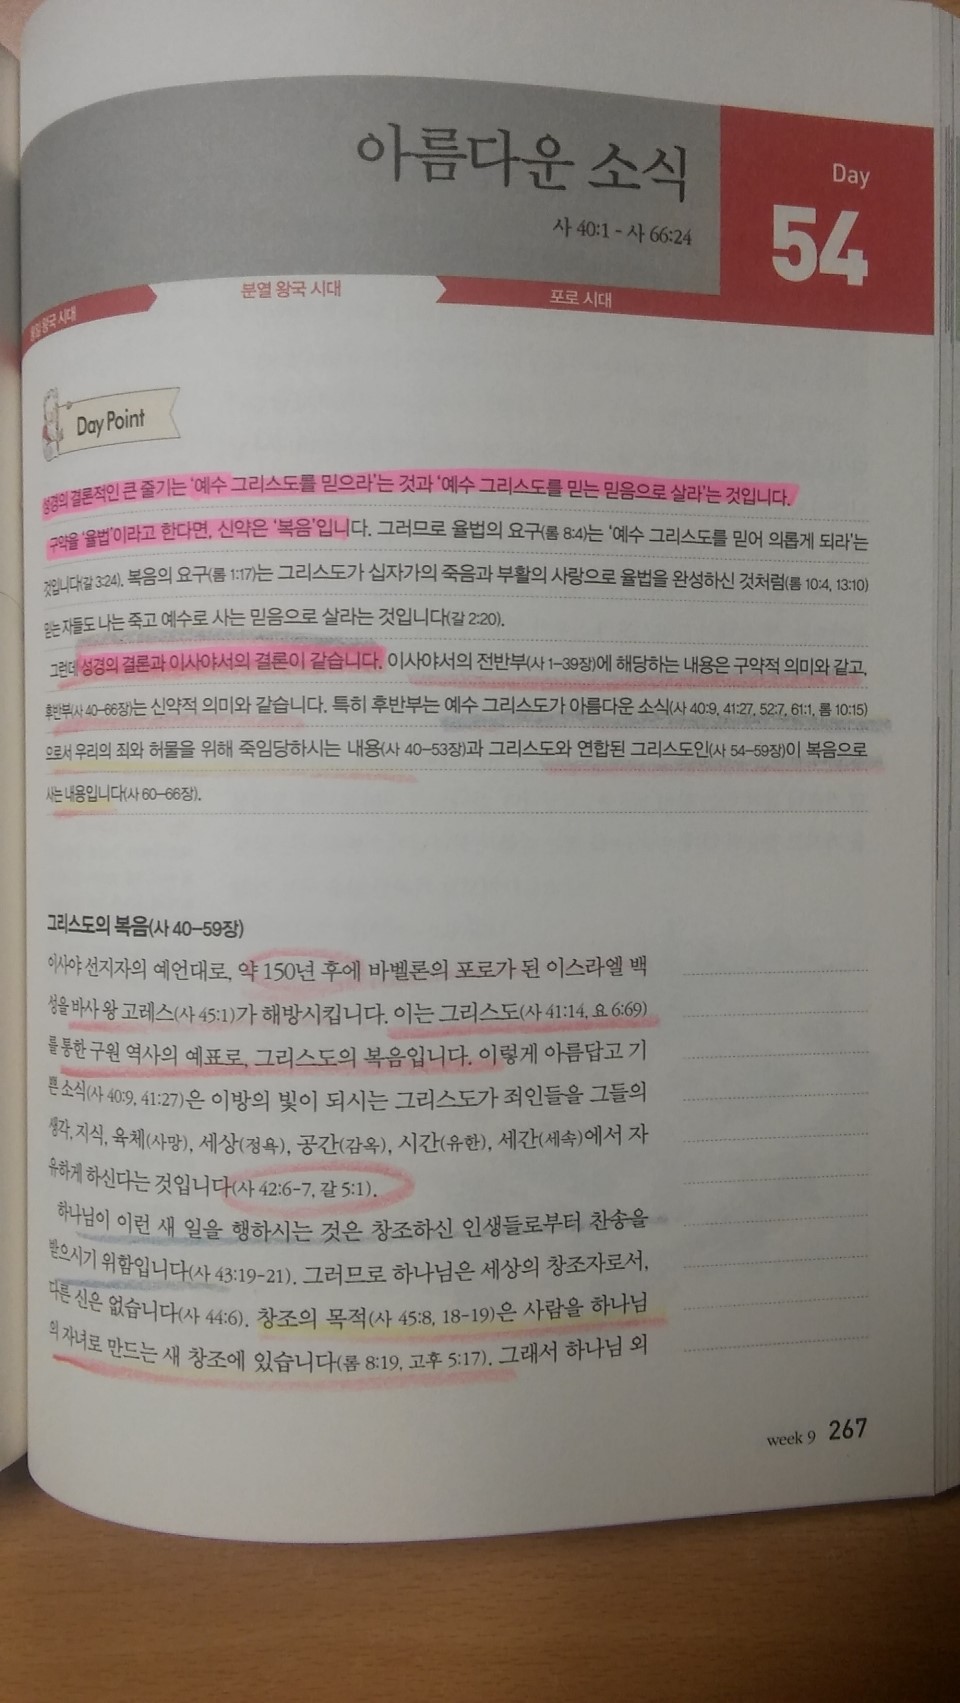 아름다운 소식
사 40:1 - 사 66:24
Day
54
통일 왕국 시대
분열 왕국 시대
포로 시대
Day Point
성경의 결론적인 큰 줄기는 '예수 그리스도를 믿으라'는 것과 '예수 그리스도를 믿는 믿음으로 살라'는 것입니다.
구약을 '율법'이라고 한다면, 신약은 '복음'입니다. 그러므로 율법의 요구(롬 8:4)는 '예수 그리스도를 믿어 의롭게 되라'는
것입니다(갈 3:24). 복음의 요구(롬 1:17)는 그리스도가 십자가의 죽음과 부활의 사랑으로 율법을 완성하신 것처럼(롬 10:4, 13:10)
믿는 자들도 나는 죽고 예수로 사는 믿음으로 살라는 것입니다(갈 2:20).
그런데 성경의 결론과 이사야서의 결론이 같습니다. 이사야서의 전반부(사 1-39장)에 해당하는 내용은 구약적 의미와 같고,
후반부(사 40-66장)는 신약적 의미와 같습니다. 특히 후반부는 예수 그리스도가 아름다운 소식(사 40:9, 41:27, 52:7, 61:1, 롬 10:15)
으로서 우리의 죄와 허물을 위해 죽임당하시는 내용(사 40-53장)과 그리스도와 연합된 그리스도인(사 54-59장)이 복음으로
사는 내용입니다(사 60-66장).
그리스도의 복음(사 40-59장)
이사야 선지자의 예언대로, 약 150년 후에 바벨론의 포로가 된 이스라엘 백
성을 바사 왕 고레스(사 45:1)가 해방시킵니다. 이는 그리스도(사 41:14, 요 6:69)
를 통한 구원 역사의 예표로, 그리스도의 복음입니다. 이렇게 아름답고 기
쁜 소식(사 40:9, 41:27)은 이방의 빛이 되시는 그리스도가 죄인들을 그들의
생각, 지식, 육체(사망), 세상(정욕), 공간(감옥), 시간(유한), 세간(세속)에서 자
유하게 하신다는 것입니다(사 42:6-7, 갈 5:1).
하나님이 이런 새 일을 행하시는 것은 창조하신 인생들로부터 찬송을
받으시기 위함입니다(사 43:19-21). 그러므로 하나님은 세상의 창조자로서,
다른 신은 없습니다(사 44:6). 창조의 목적(사 45:8, 18-19)은 사람을 하나님
의 자녀로 만드는 새 창조에 있습니다(롬 8:19, 고후 5:17). 그래서 하나님 외
week 9 267